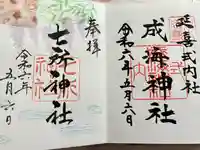 延喜式内社
成海神社
令和六年五月六日
奉拝
七所神社
令和六年
五月六日